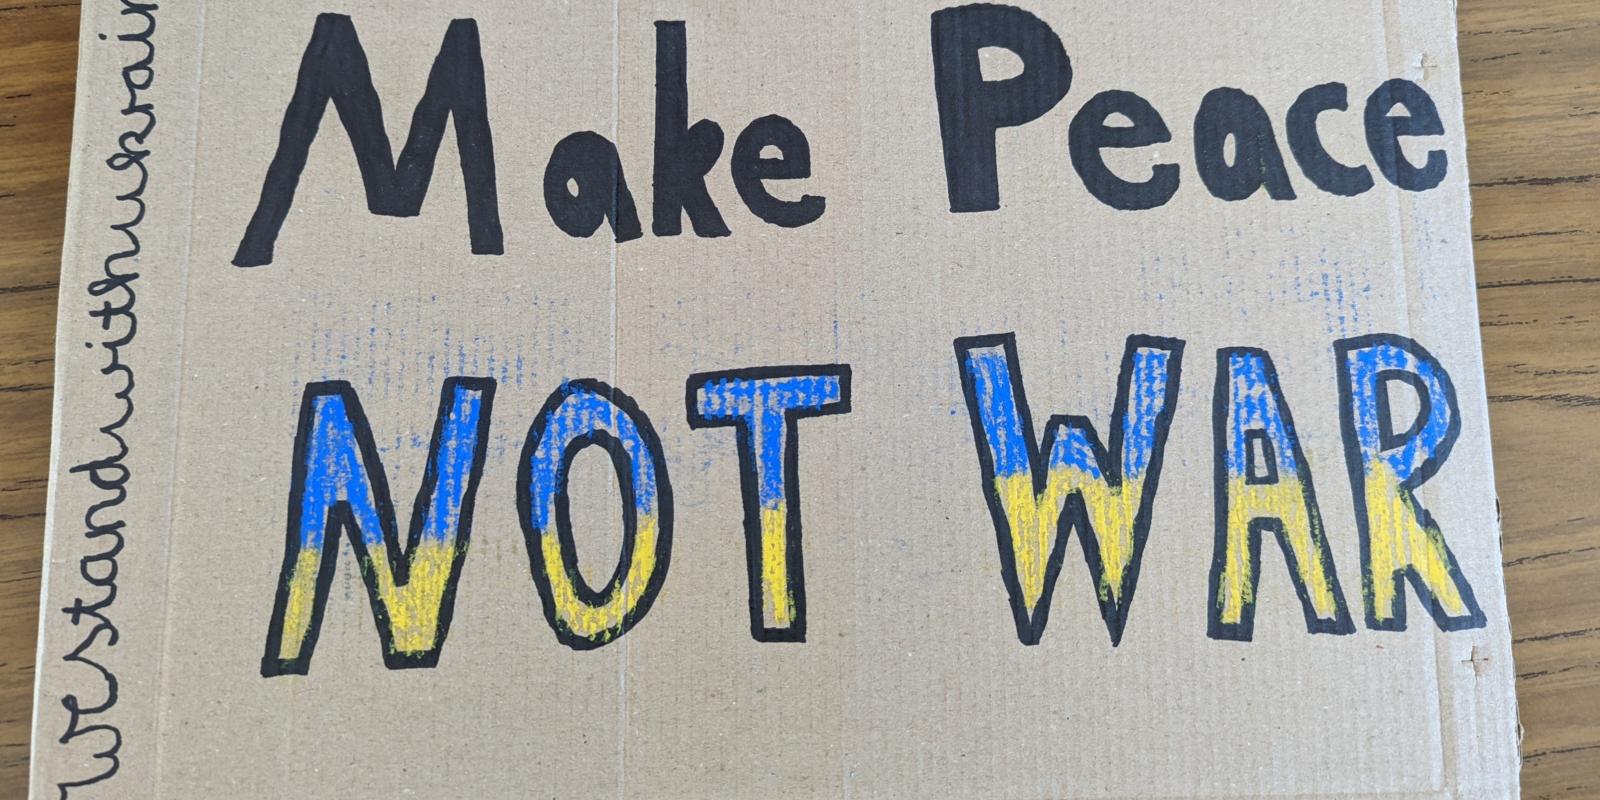 Make Peace
NOT WAR
westandwithukrain